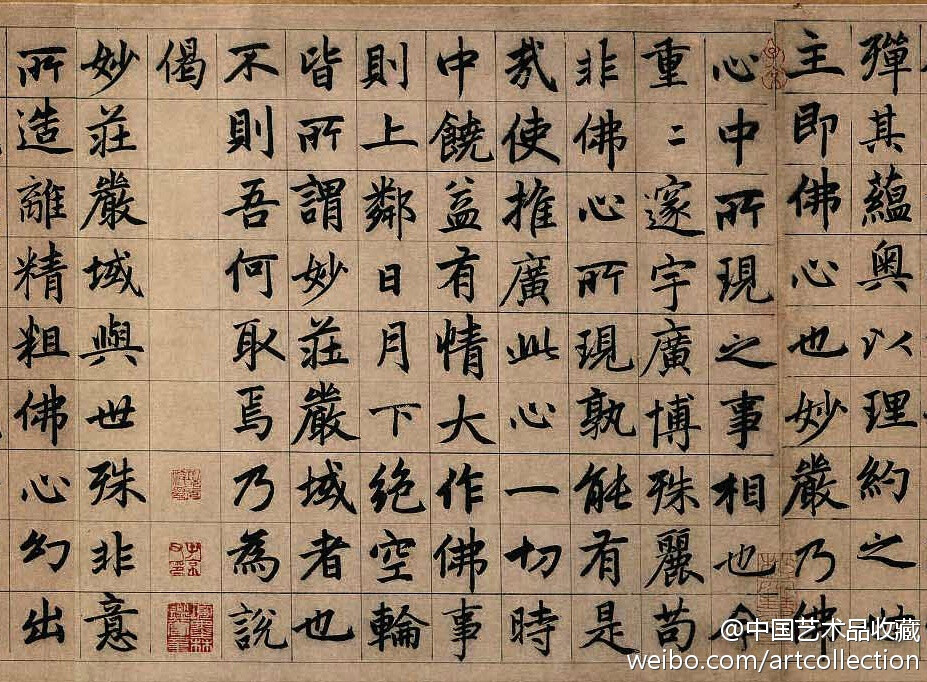 彈其蘊奧以理約之
主即佛心也妙嚴乃佛
心中所現之事相也今
重二邃宇廣博殊麗苟
非佛心所現孰能有是
哉使推廣此心一切時
中饒益有情大作佛事
則上鄰日月下絕空輪
皆所謂妙莊嚴域者也
不則吾何取焉乃為說
偈
妙莊嚴域與世殊非意
所造離精粗佛心幻出
@中国艺术品收藏
weibo.com/artcollection